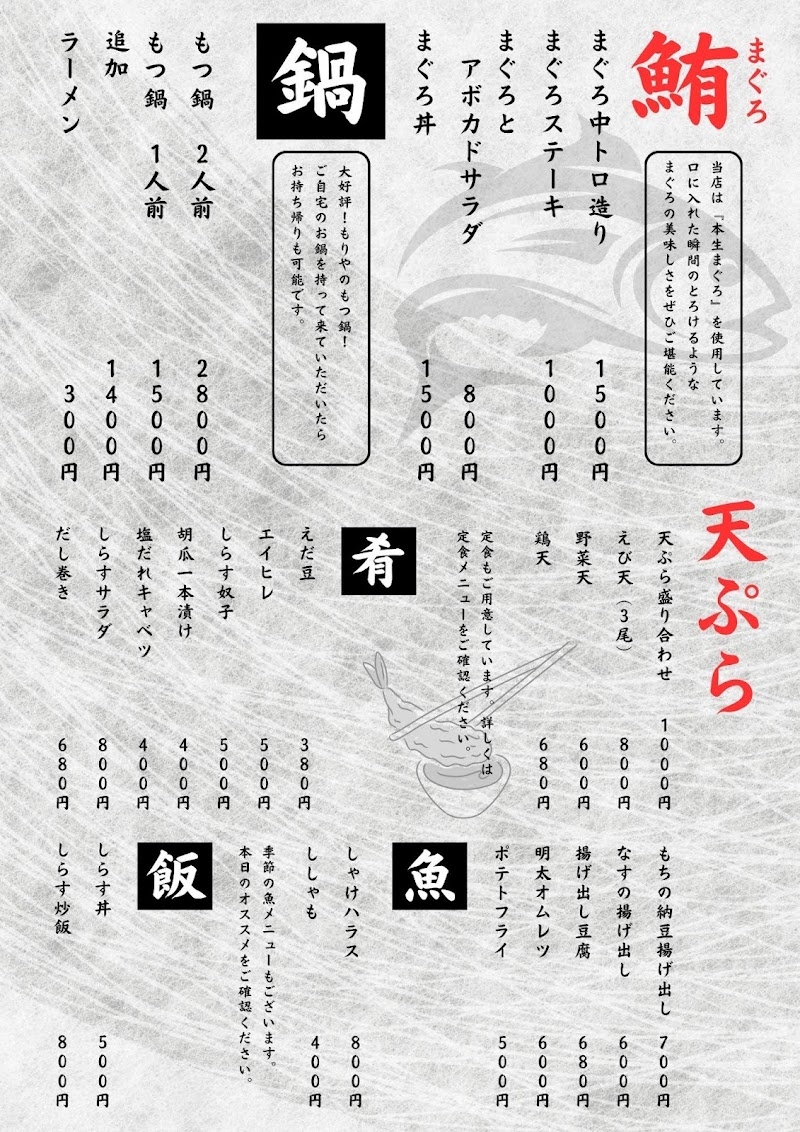 鮪
まぐろ
当店は『本生まぐろ』を使用しています。
口に入れた瞬間のとろけるような
まぐろの美味しさをぜひご堪能ください。
まぐろ中トロ造り 1500円
まぐろステーキ 1000円
まぐろと
アボカドサラダ 800円
まぐろ丼 1500円
鍋
大好評！もりやのもつ鍋！
ご自宅のお鍋を持って来ていただいたら
お持ち帰りも可能です。
もつ鍋 2人前 2800円
もつ鍋 1人前 1500円
追加 1400円
ラーメン 300円
天ぷら
天ぷら盛り合わせ 1000円
えび天（3尾） 800円
野菜天 600円
鶏天 680円
定食もご用意しています。詳しくは
定食メニューをご確認ください。
肴
えだ豆 380円
エイヒレ 500円
しらす奴子 500円
胡瓜一本漬け 400円
塩だれキャベツ 400円
しらすサラダ 800円
だし巻き 680円
もちの納豆揚げ出し 700円
なすの揚げ出し 600円
揚げ出し豆腐 680円
明太オムレツ 600円
ポテトフライ 500円
魚
しゃけハラス 800円
ししゃも 400円
季節の魚メニューもございます。
本日のオススメをご確認ください。
飯
しらす丼 500円
しらす炒飯 800円